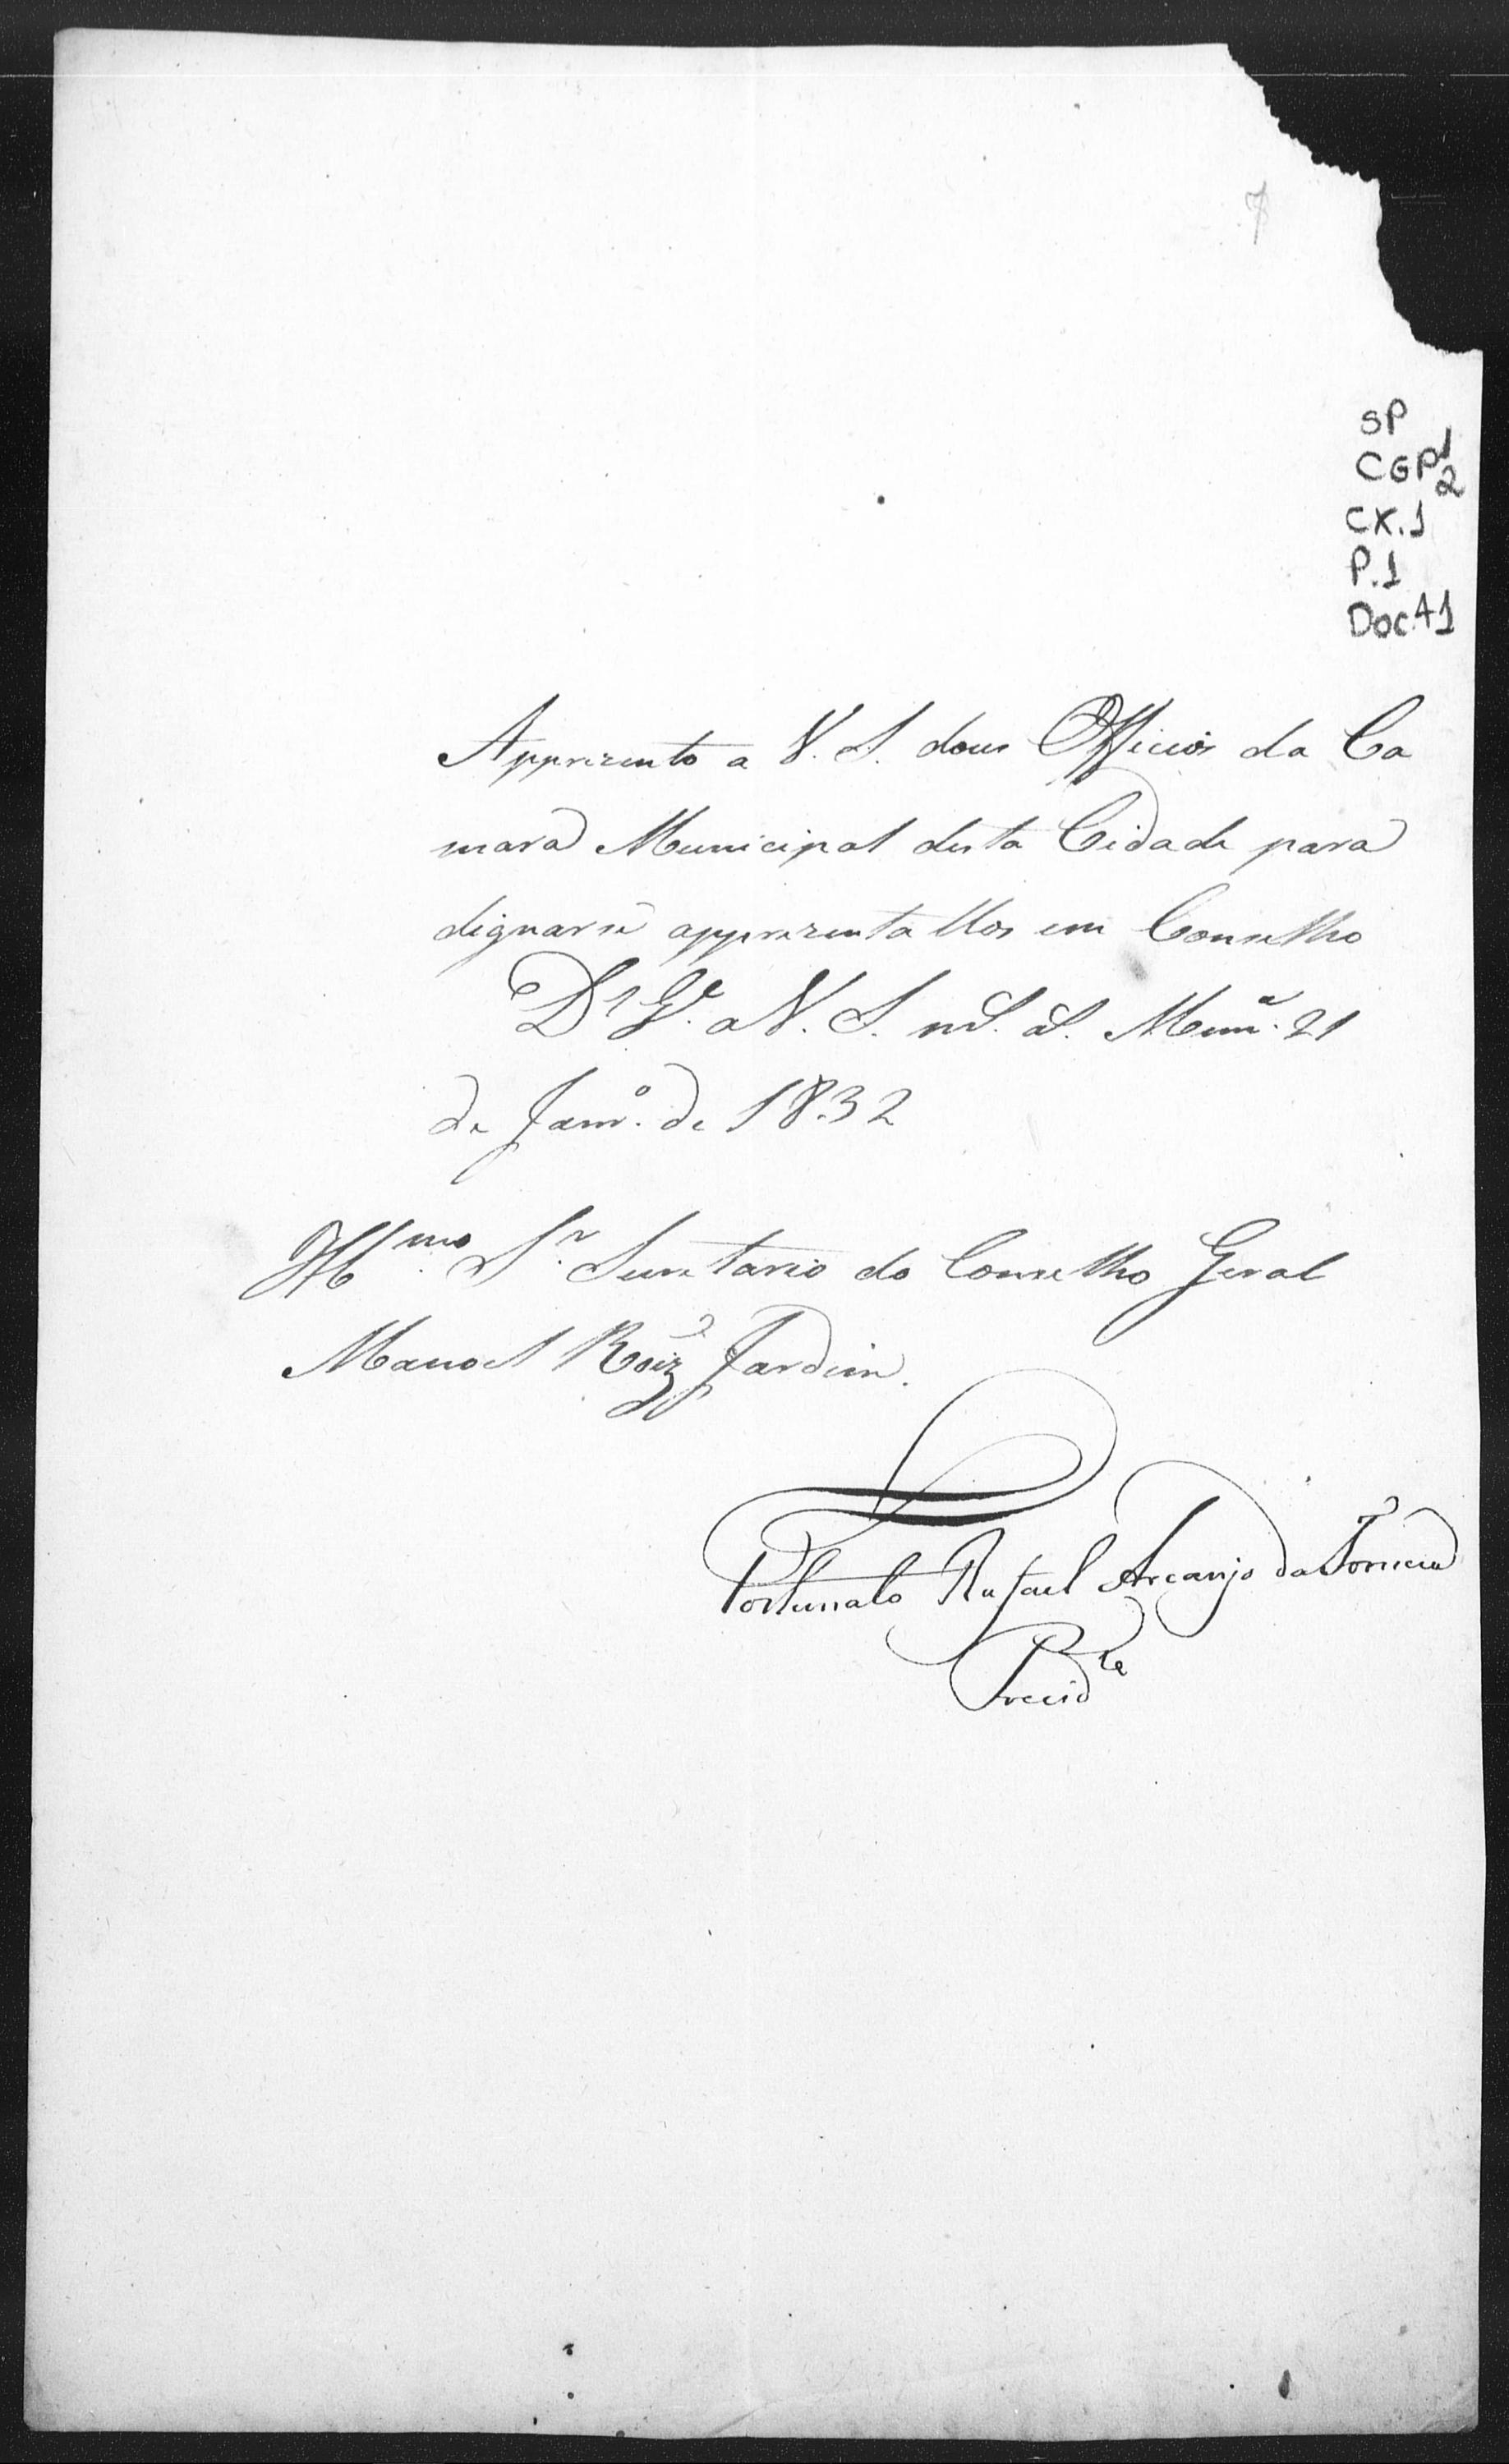 7
SP
CGP 1
2
CX.1
P.1
Doc.41
Apprezento a V. S. dous Officios da Ca
mara Municipal desta Cidade para
dignarse apprezentallos em Conselho
Ds. Ge. a V. S. m.s a.s
21
de Janro. de 1832
Illmo. Sr. Secretario do Conselho Geral
Manoel Roiz Jardim.
Fortunato Rafael Arcanjo da
Precid.te